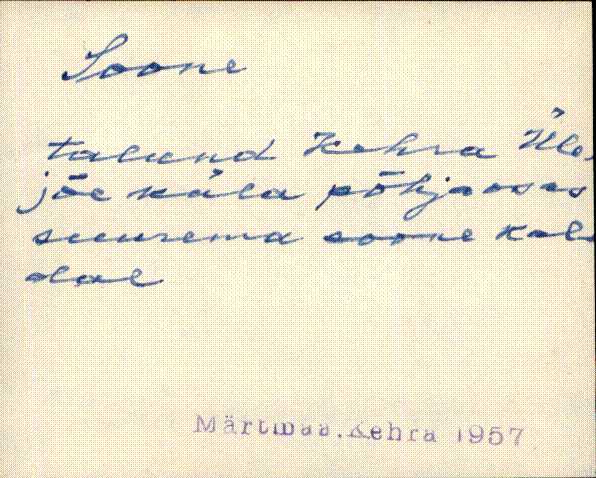 Soone
talund Kehra Üle-
jõe küla põhjaosas
suurema soone kal-
dal
Märtmaa, Kehra 1957